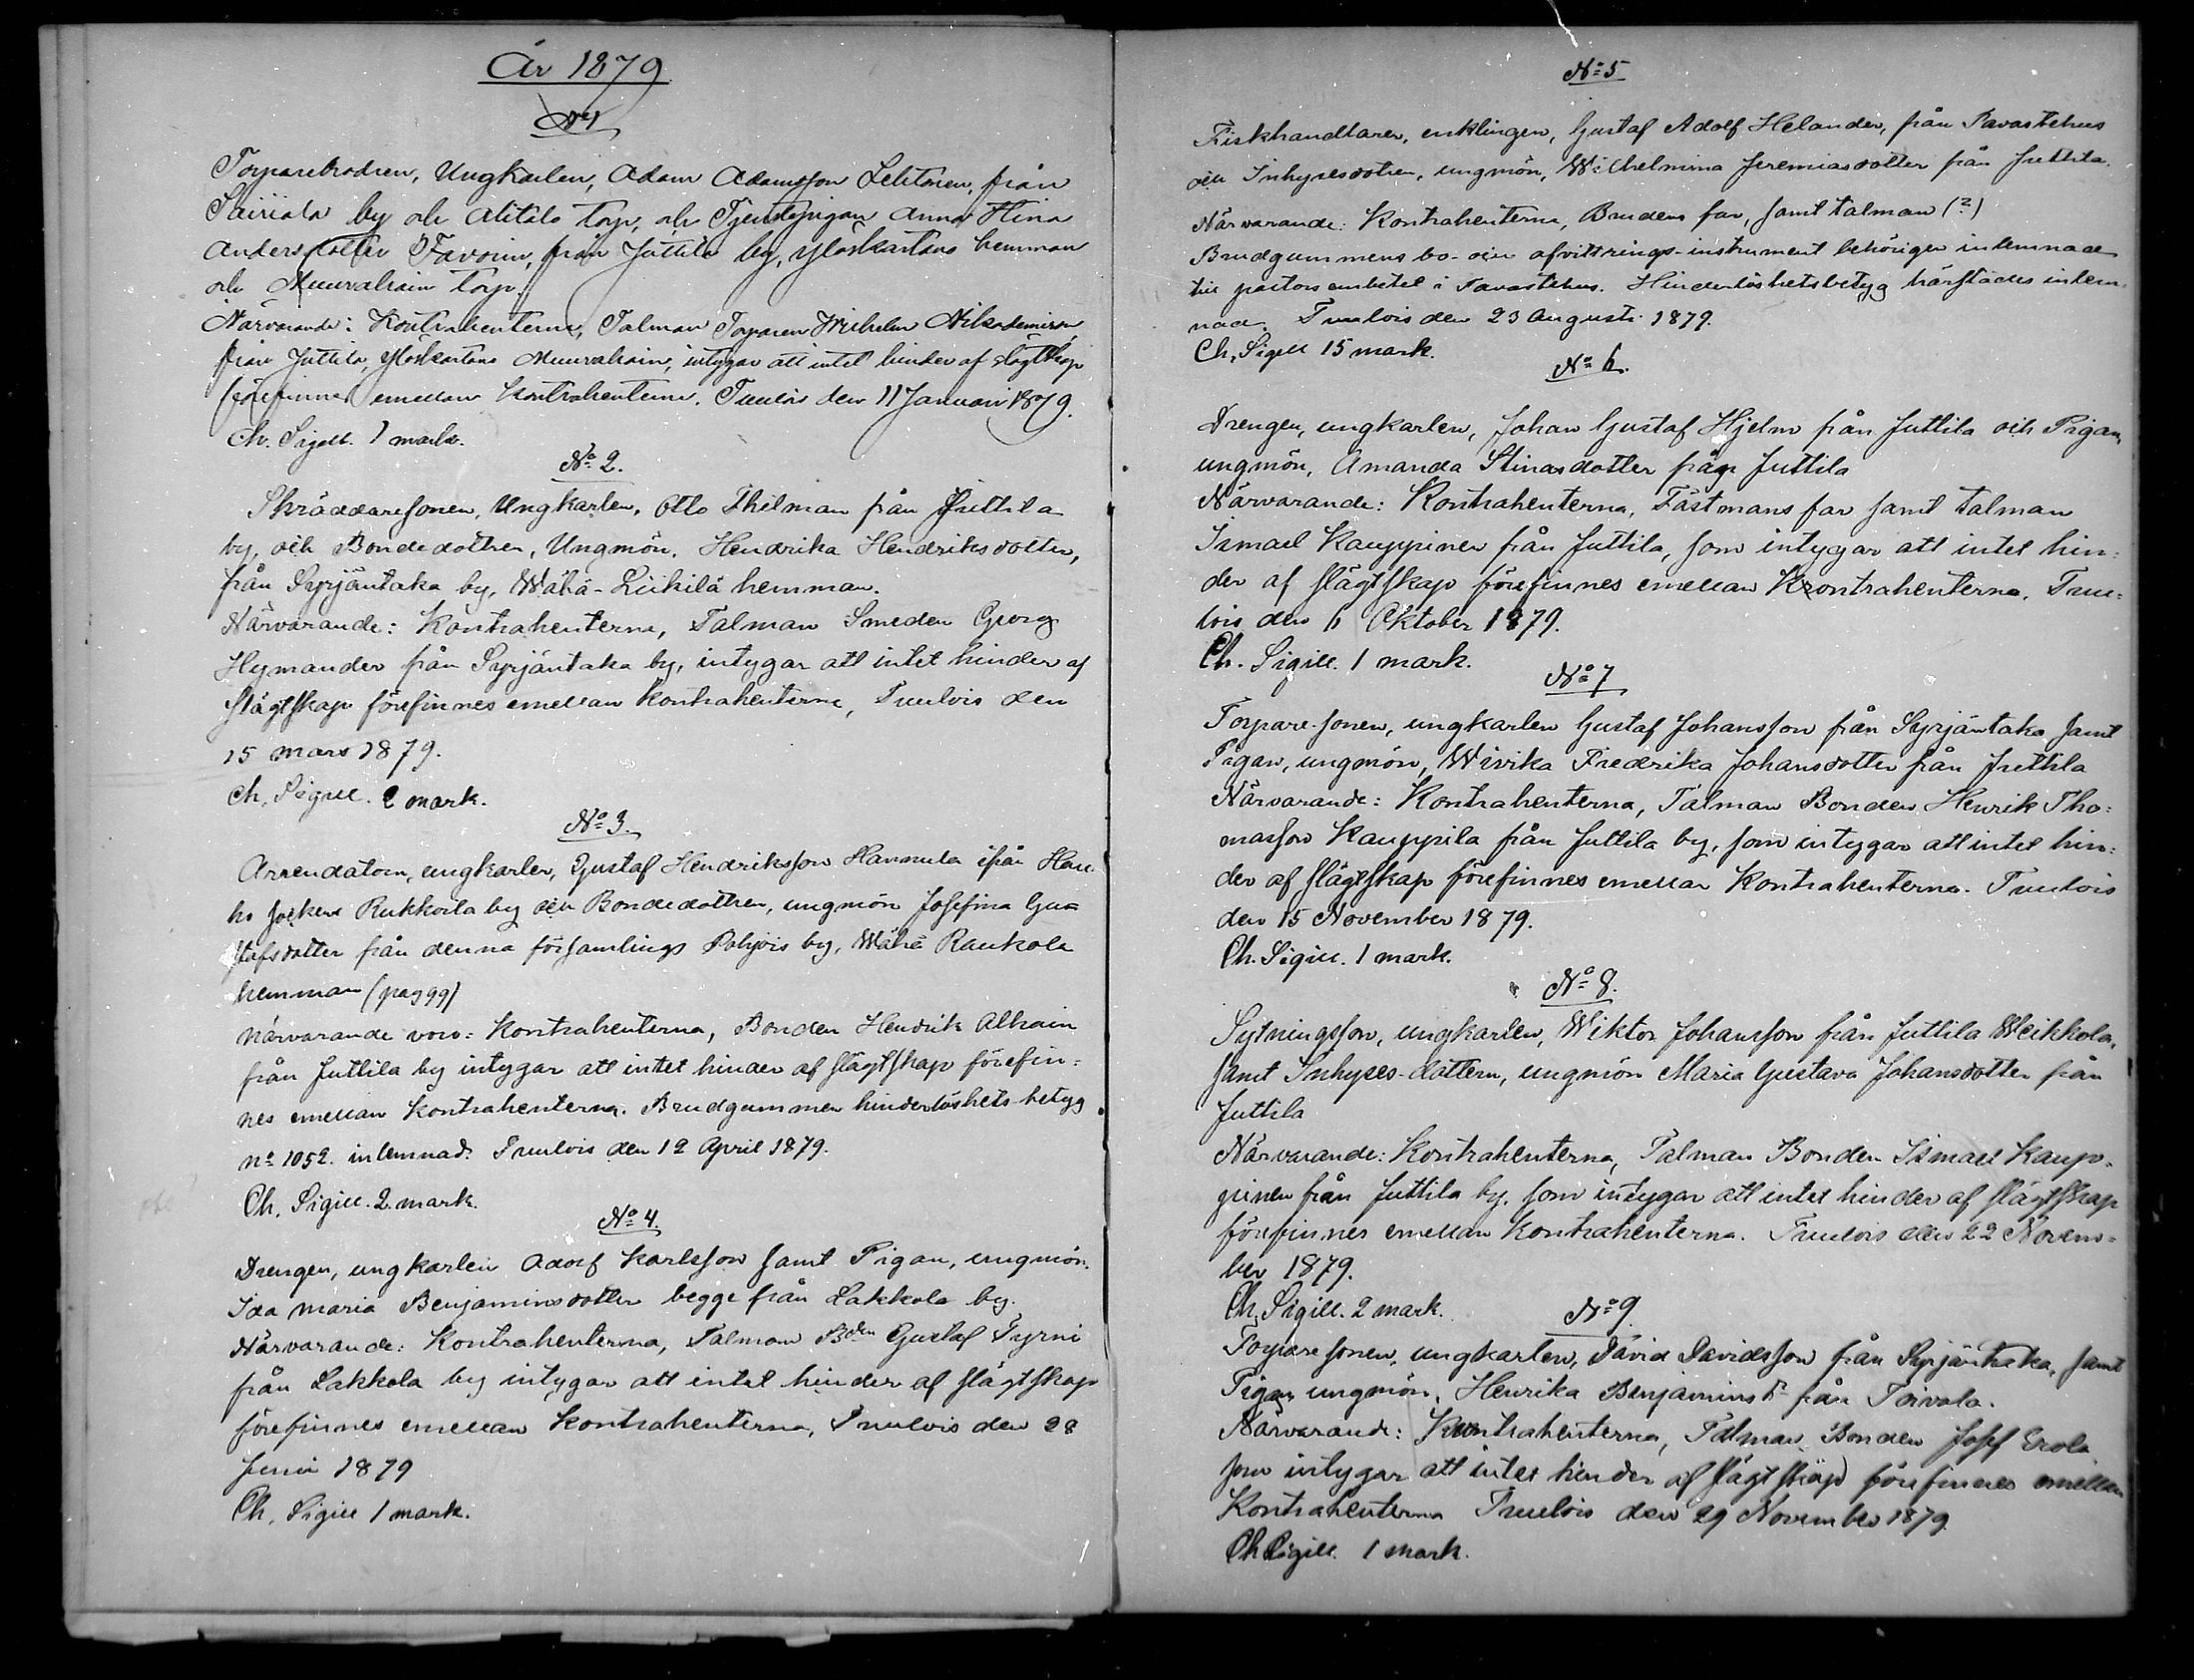 År 1879
No 1
Torparebrodren, Ungkarlen, Adam Adamsson Lehtonen, från
Sairiala by och Alitalo torp, och Tjenstepigan Anna Stina
Andersdotter Favorin, från Juttila by, Yloskartano hemman
och Muuralrain torp.
Närvarande: Kontrahenterne, Talman Torparen Wilhelm Nikodemusson
från Juttila, Yloskartano Muuralrain, intygar att intet hinder af slägtskap
förefinnes emellan Kontrahenterne. Tuulois den 11 Januari 1879.
Ch. Sigill. 1 mark.
No 2.
Skräddaresonen, Ungkarlen, Otto Thilman från Juttila
by, och Bondedottren, Ungmön, Hendrika Hendriksdotter,
från Syrjäntaka by, Wähä-Liikilä hemman.
Närvarande: Kontrahenterne, Talman Smeden Georg
Hymander från Syrjäntaka by, intygar att intet hinder af
slägtskap förefinnes emellan kontrahenterne, Tuulois den
15 mars 1879.
Ch. Sigill. 2 mark.
No 3.
Arrendatorn, ungkarlen, Gustaf Hendriksson Hannula ifrån Hau-
ho socken Rukkoila by och Bondedottren, ungmön Josefina Gus
stafsdotter från denna församlings Pohjois by, Wähä Raukola
hemman (pag 99)
närvarande voro: Kontrahenterna, Bonden Hendrik Alhain
från Juttila by intygar att intet hinder af slägtskap förefin=
nes emellan kontrahenterna. Brudgummen hinderlöshets-betyg
no 1052. inlemnad. Tuulois den 12 April 1879.
Ch. Sigill. 2 mark.
No 4.
Drengen, ungkarlen Adolf Karlsson samt Pigan, ungmön.
Ida Maria Benjaminsdotter begge från Lakkola by.
Närvarande: Kontrahenterna, Talman Bden Gustaf Tyrni
från Lakkola by intygar att intet hinder af slägtskap
förefinnes emellan kontrahenterna, Tuulois den 28
Juni 1879
Ch. Sigill 1 mark.
No 5
Fiskhandlaren, enklingen, Gustaf Adolf Helander, från Tavastehus
och Inhysesdottren, ungmön, Wilhelmina Jeremiasdotter från Juttila.
Närvarande: Kontrahenterna, Brudens far, samt talman (?)
Brudgummens bo- och afvittrings-instrument behörigen inlemnade
till pastorsembetet i Tavastehus. Hinderlöshetsbetyg härstädes inlem-
nad. Tuulois den 23 Augusti 1879.
Ch. Sigill 15 mark.
No 6.
Drengen, ungkarlen, Johan Gustaf Hjelm från Juttila och Pigan,
ungmön, Amanda Stinasdotter från Juttila
Närvarande: Kontrahenterna, Fästmans far samt talman
Ismael Kauppinen från Juttila, som intygar att intet hin=
der af slägtskap förefinnes emellan Kontrahenterna. Tuu=
lois den 6 Oktober 1879.
Ch. Sigill. 1 mark.
No 7
Torpare-sonen, ungkarlen Gustaf Johansson från Syrjäntaka samt
Pigan, ungmön, Wivika Fredrika Johansdotter från Juttila
Närvarande: Kontrahenterna, Talman Bonden Henrik Tho=
masson Kauppila från Juttila by, som intygar att intet hin=
der af slägtskap förefinnes emellan Kontrahenterna. Tuulois
den 15 November 1879.
Ch. Sigill. 1 mark.
No 8.
Sytningsson, ungkarlen, Wiktor Johansson från Juttila Weikkola,
samt Inhyses-dottern, ungmön Maria Gustava Johansdotter från
Juttila
Närvarande: Kontrahenterna, Talman Bonden Ismael Kaup=
pinen från Juttila by, som intygar att intet hinder af slägtskap
förefinnes emellan kontrahenterna. Tuulois den 22 Novem=
ber 1879.
Ch. Sigill. 2 mark.
No 9.
Torpare sonen, ungkarlen, David Davidsson från Syrjäntaka, samt
Pigan ungmön, Henrika Benjaminsdr från Toivola.
Närvarande: Kontrahenterna, Talman Bonden Josef Erola
som intygar att intet hinder af slägtskap förefinnes emellan
Kontrahenterna Tuulois den 29 November 1879
Ch Sigill. 1 mark.